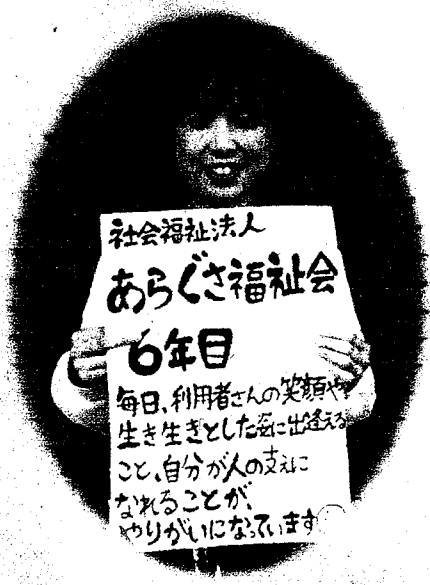 社会福祉法人
あらぐさ福祉会
6年目
毎日、利用者さんの笑顔や
生き生きとした姿に出逢える
こと、自分が人の支えに
なれることが、
やりがいになっています